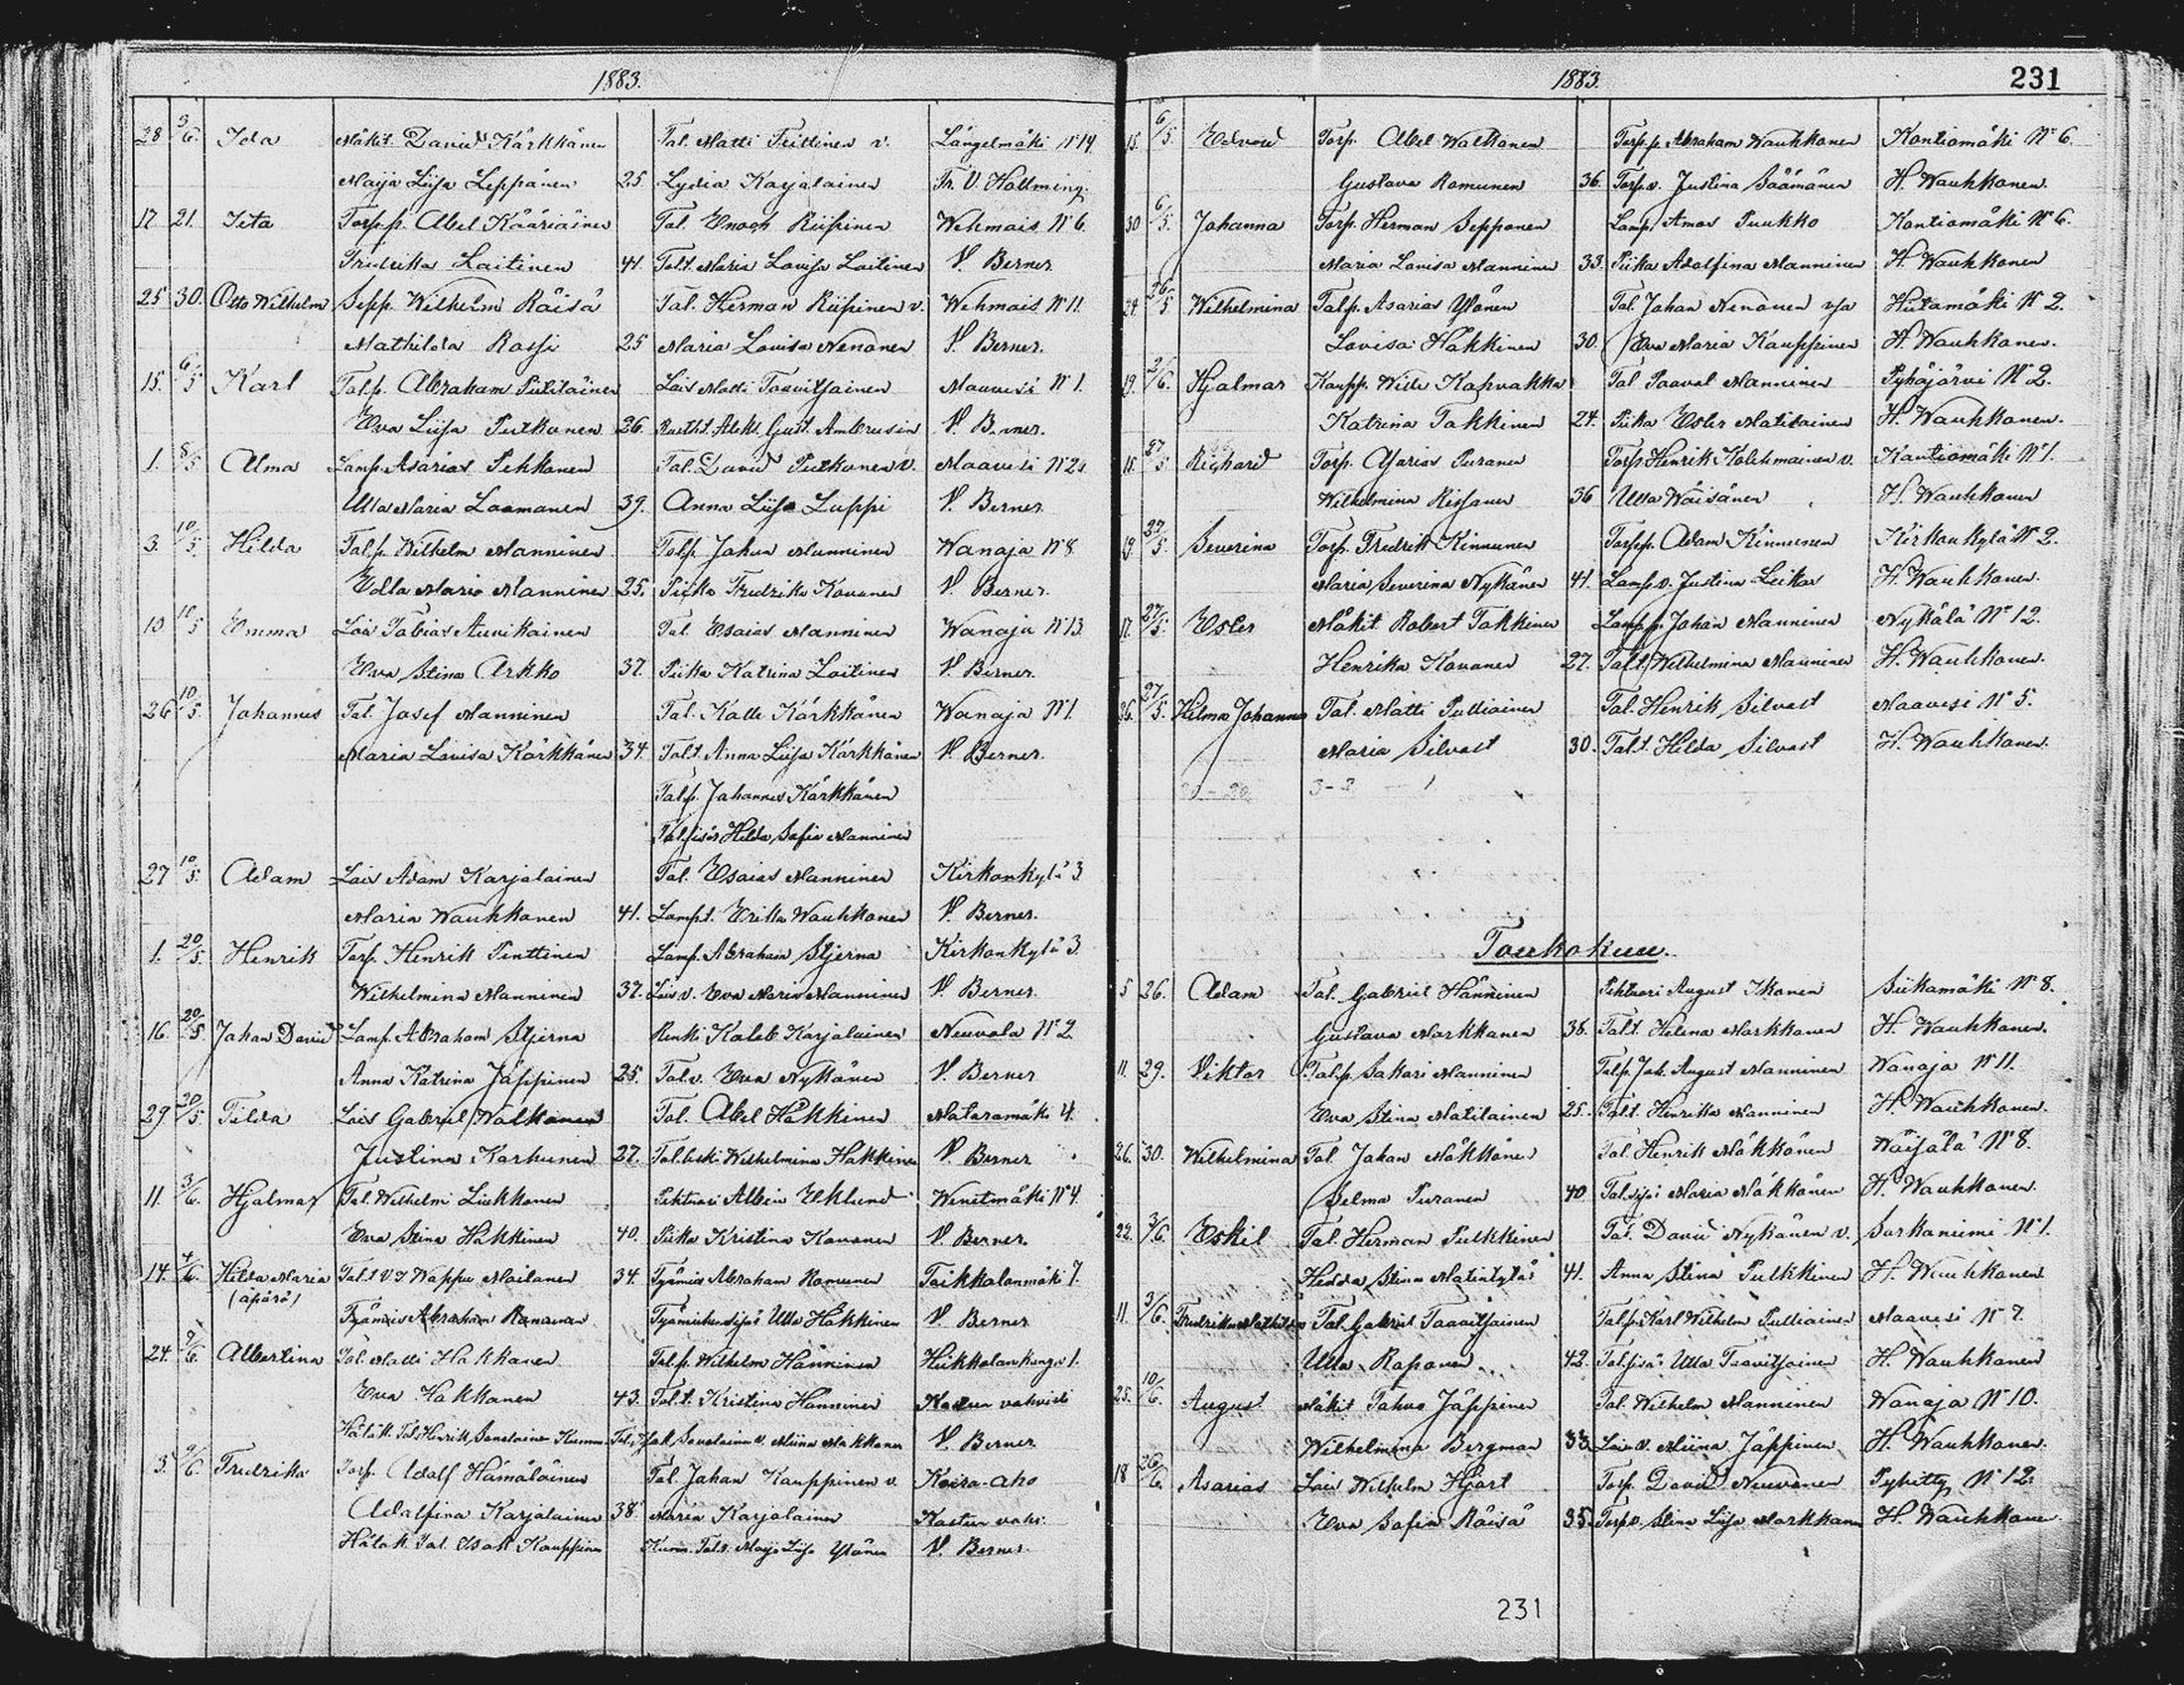 1883.
28 3/6. Ida Mäkit. David Kärkkänen Tal. Matti Tiittinen v. Längelmäki N:14.
Maija Liisa Leppänen 25 Lydia Karjalainen Fr. V. Hallming.
17 21. Iita Torp.p. Abel Kääriäinen Tal. Enoch Riipinen Wehmais N:6.
Fredrika Laitinen 41. Tal.t. Maria Lovisa Laitinen V. Berner
25 30. Otto Wilhelm Sepp. Wilhelm Räisä Tal. Herman Riipinen v. Wehmais N:11.
Mathilda Rossi 25 Maria Lovisa Nenonen V. Berner.
15. 6/5 Karl Tal.p. Abraham Putilainen Lois Matti Taavitsainen Maavesi N:1.
Eva Liisa Putkonen 26. Gust. Ambrusin V. Berner.
1. 8/5 Alma Lamp. Asarias Pekkanen Tal. David Putkonen v. Maavesi N:20
Ulla Maria Laamanen 39. Anna Liisa Luppi V. Berner
3. 10/5. Hilda Tal.p. Wilhelm Manninen Tal.p. Johan Manninen Wanaja N:8
Edla Maria Manninen 25. Piika Fredrika Kovanen V. Berner.
10 10/5 Emma Lois Tobias Aunikainen Tal. Esaias Manninen Wanaja N:13
Eva Stina Arkko 37. Piika Katrina Laitinen V. Berner.
26 10/5. Johannes Tal. Josef Manninen Tal. Kalle Kärkkänen Wanaja N:1.
Maria Lovisa Kärkkänen 34. Tal.t. Anna Liisa Kärkkänen V. Berner.
Tal.p. Johannes Kärkkänen
Hilda Sofia Manninen
27 10/5. Adam Lois Adam Karjalainen Tal. Esaias Manninen Kirkonkylä 3
Maria Wauhkonen 41. Lamp.t. Erika Wauhkonen V. Berner.
1. 20/5. Henrik Torp. Henrik Penttinen Lamp. Abraham Stjerna Kirkonkylä 3
Wilhelmina Manninen 37. Lois v. Eva Maria Manninen V. Berner
16. 20/5. Johan David Lamp. Abraham Stjerna Renki Kaleb Karjalainen Neuvola N:2
Anna Katrina Jäppinen 25. Tal.v. Eva Nykänen V. Berner
29 20/5 Tilda Lois Gabriel Walkonen Tal. Abel Häkkinen Mataramäki 4.
Justina Karhunen 27. Tal.leski Wilhelmina Häkkinen V. Berner
11. 3/6. Hjalmar Tal. Wilhelm Liukkonen Pehtori Albin Eklund Wenetmäki N:4.
Eva Stina Häkkinen 40. Piika Kristina Kovanen V. Berner.
14. 4/6. Hilda Maria Tal.t. Wappu Moilanen 34. Työmies Abraham Romunen Toikkalanmäki 7.
(äpärä)
Työmies Abraham Romunen Työmiehen Ulla Häkkinen V. Berner
24. 9/6. Albertina Tal. Matti Hakkanen Tal.p. Wilhelm Hänninen Hiikkolankangas 1.
Eva Hakkanen 43. Tal.t. Kristina Hänninen Kasteen vahvisti
Hätäk. Tal. Henrik Savolainen Kumm. Savolainen v. Miina Makkonen V. Berner
3. 9/6. Fredrika Torp. Adolf Hämäläinen Tal. Johan Kauppinen v. Koira-aho
Adolfina Karjalainen 38 Maria Karjalainen Kasteen vahv.
Hätäk. Tal. Isak Kauppinen Kumm. Tal.v. Maija Liisa Ylönen V. Berner.
1883.
231
15. 6/5. Edvard Torp. Abel Walkonen Torp.p. Abraham Wauhkonen Kontiomäki N:6.
Gustava Romunen 36. Torp.v. Justina Säämänen H. Wauhkonen.
30 6/5. Johanna Torp. Herman Sepponen Lamp. Amos Puukko Kontiomäki N:6.
Maria Lovisa Manninen 33. Piika Adolfina Manninen H. Wauhkonen
24. 26/5 Wilhelmina Tal.p. Asarias Ylönen Tal. Johan Nenonen v:sa Hiitamäki N:2.
Lovisa Häkkinen 30. Eva Maria Kauppinen H. Wauhkonen.
19. 2/6. Hjalmar Kaupp. Wille Kahvakka Tal Paaval Manninen Pyhäjärvi N:2.
Katrina Takkinen 24. Piika Ester Matilainen H. Wauhkonen.
15. 27/5 Richard Torp. Asarias Puranen Torp. Henrik Kolehmainen v. Kontiomäki N:1.
Wilhelmina Rissanen 36 Ulla Wäisänen H. Wauhkonen
19. 27/5. Severina Torp. Fredrik Kinnunen Torp.p. Adam Kinnunen Kirkonkylä N:2.
Maria Severina Nykänen 41. Lamp.v. Justina Leikas H. Wauhkonen.
17. 27/5. Ester Mäkit. Robert Takkinen Lamp.p. Johan Manninen Nykälä N:12.
Henrika Kovanen 27. Tal.t. Wilhelmina Manninen H. Wauhkonen.
26. 27/5. Hilma Johanna Tal. Matti Pulliainen Tal. Henrik Silvast Maavesi N:5.
Maria Silvast 30. Tal.t. Hilda Silvast H. Wauhkonen.
Toukokuu.
5 26. Adam Tal. Gabriel Hänninen Pehtori August Ikonen Siikamäki N:8.
Gustava Markkanen 38. Tal.t. Helena Markkanen H. Wauhkonen.
11. 29. Viktor Tal.p. Sakari Manninen Tal.p. Joh. August Manninen Wanaja N:11.
Eva Stina Matilainen 25. Tal.t. Henrika Manninen H. Wauhkonen.
26. 30. Wilhelmina Tal. Johan Mäkkönen Tal. Henrik Mäkkönen Wäisälä N:8.
Selma Puranen 40. Maria Mäkkönen H. Wauhkonen.
22. 3/6. Eskil Tal. Herman Pulkkinen Tal. David Nykänen v. Sarkaniemi N:1.
Hedda Stina Matintytär 41. Anna Stina Pulkkinen H. Wauhkonen
11. 3/6. Fredrika Mathilda Tal. Gabriel Taavitsainen Tal.p. Karl Wilhelm Pulliainen Maavesi N:7.
Ulla Raponen 42. Ulla Taavitsainen H. Wauhkonen
25. 10/6. August Mäkit Tahvo Jäppinen Tal. Wilhelm Manninen Wanaja N:10.
Wilhelmina Bergman 33. Lois v. Miina Jäppinen H. Wauhkonen.
18 26/6. Asarias Lois Wilhelm Hjort Torp. David Neuvonen Pyhitty N:12.
Eva Sofia Räisä 35. Torp.v. Stina Liisa Markkanen H. Wauhkonen
231